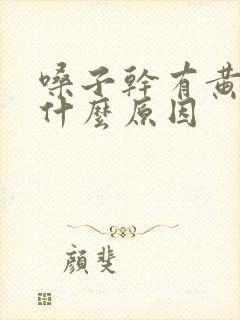 嗓子幹有黃
什麼原因
顏斐